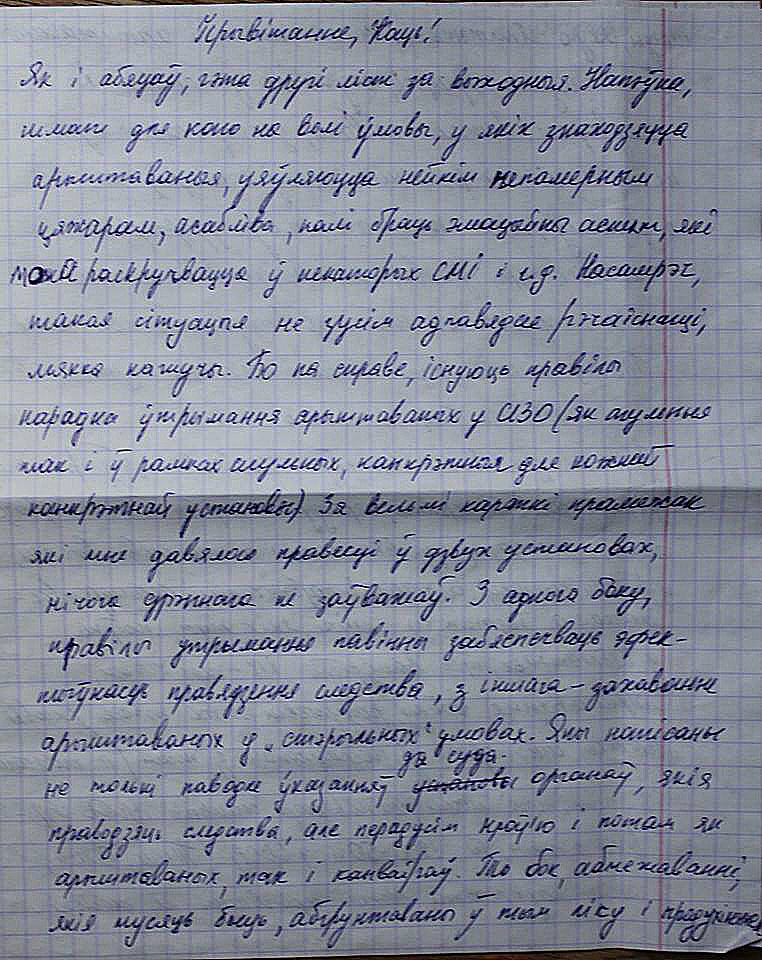 Прывітанне, Каць!
Як і абяцаў, гэта другі ліст за выходныя. Напэўна,
шмат для каго на волі ўмовы, у якіх знаходзяцца
арыштаваныя, уяўляюцца нейкім непамерным
цяжарам, асабліва, калі браць эмацыйны аспект, які
можа раскручвацца ў некаторых СМІ і г.д. Насамрэч,
такая сітуацыя не зусім адпавядае рэчаіснасці,
мякка кажучы. Бо на справе, існуюць правілы
парадка ўтрымання арыштаваных у СІЗО (як агульныя
так і ў рамках агульных, канкрэтныя для кожнай
канкрэтнай установы). За вельмі кароткі прамежак
які мне давялося правесці ў дзвух установах,
нічога дрэннага не заўважаў. З аднаго боку,
правілы утрымання павінны забяспечваць эфек-
тыўнасць правядзення следства, з іншага – захаванне
арыштаваных у „стэрыльных“ умовах. Яны напісаны
не толькі паводле ўказанняў да суда органаў, якія
праводзяць следства, але перадусім кроўю і потам як
арыштаваных, так і канваіраў. То бок, абмежаванні,
якія мусяць быць, абгрунтованы ў тым ліку і